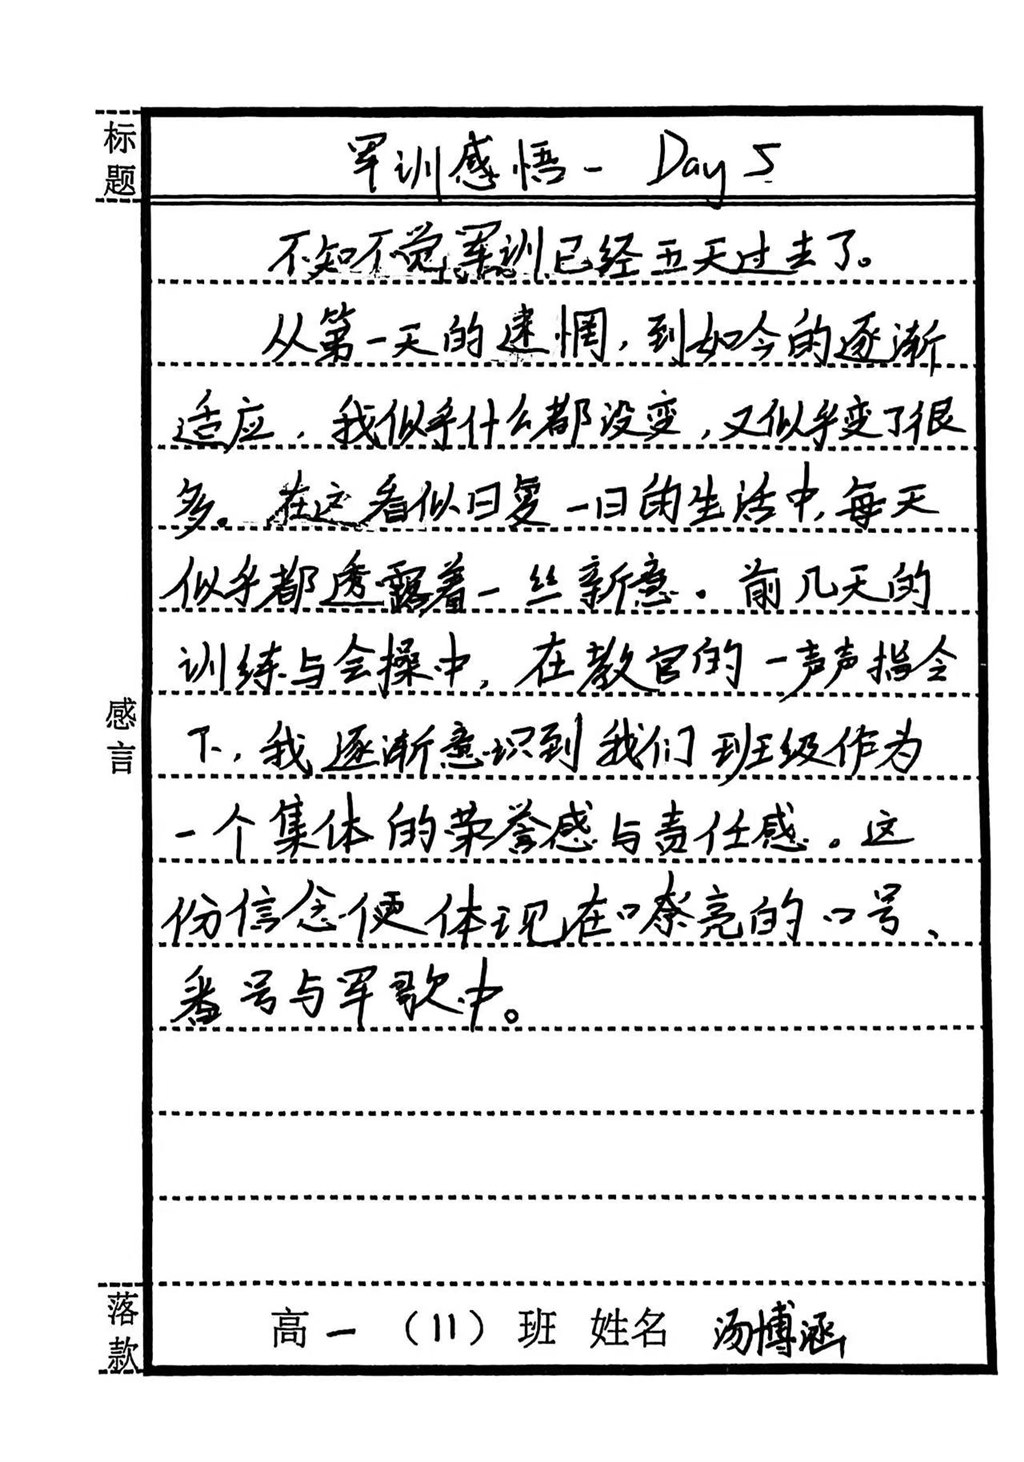 标题
军训感悟- Day 5
不知不觉军训已经五天过去了。
从第一天的迷惘，到如今的逐渐
适应，我似乎什么都没变，又似乎变了很
多。在这看似日复一日的生活中，每天
似乎都透露着一丝新意。前几天的
训练与会操中，在教官的一声声指令
下，我逐渐意识到我们班级作为
一个集体的荣誉感与责任感。这
份信念便体现在嘹亮的口号、
番号与军歌中。
感言
落款
高一（11）班 姓名 汤博涵